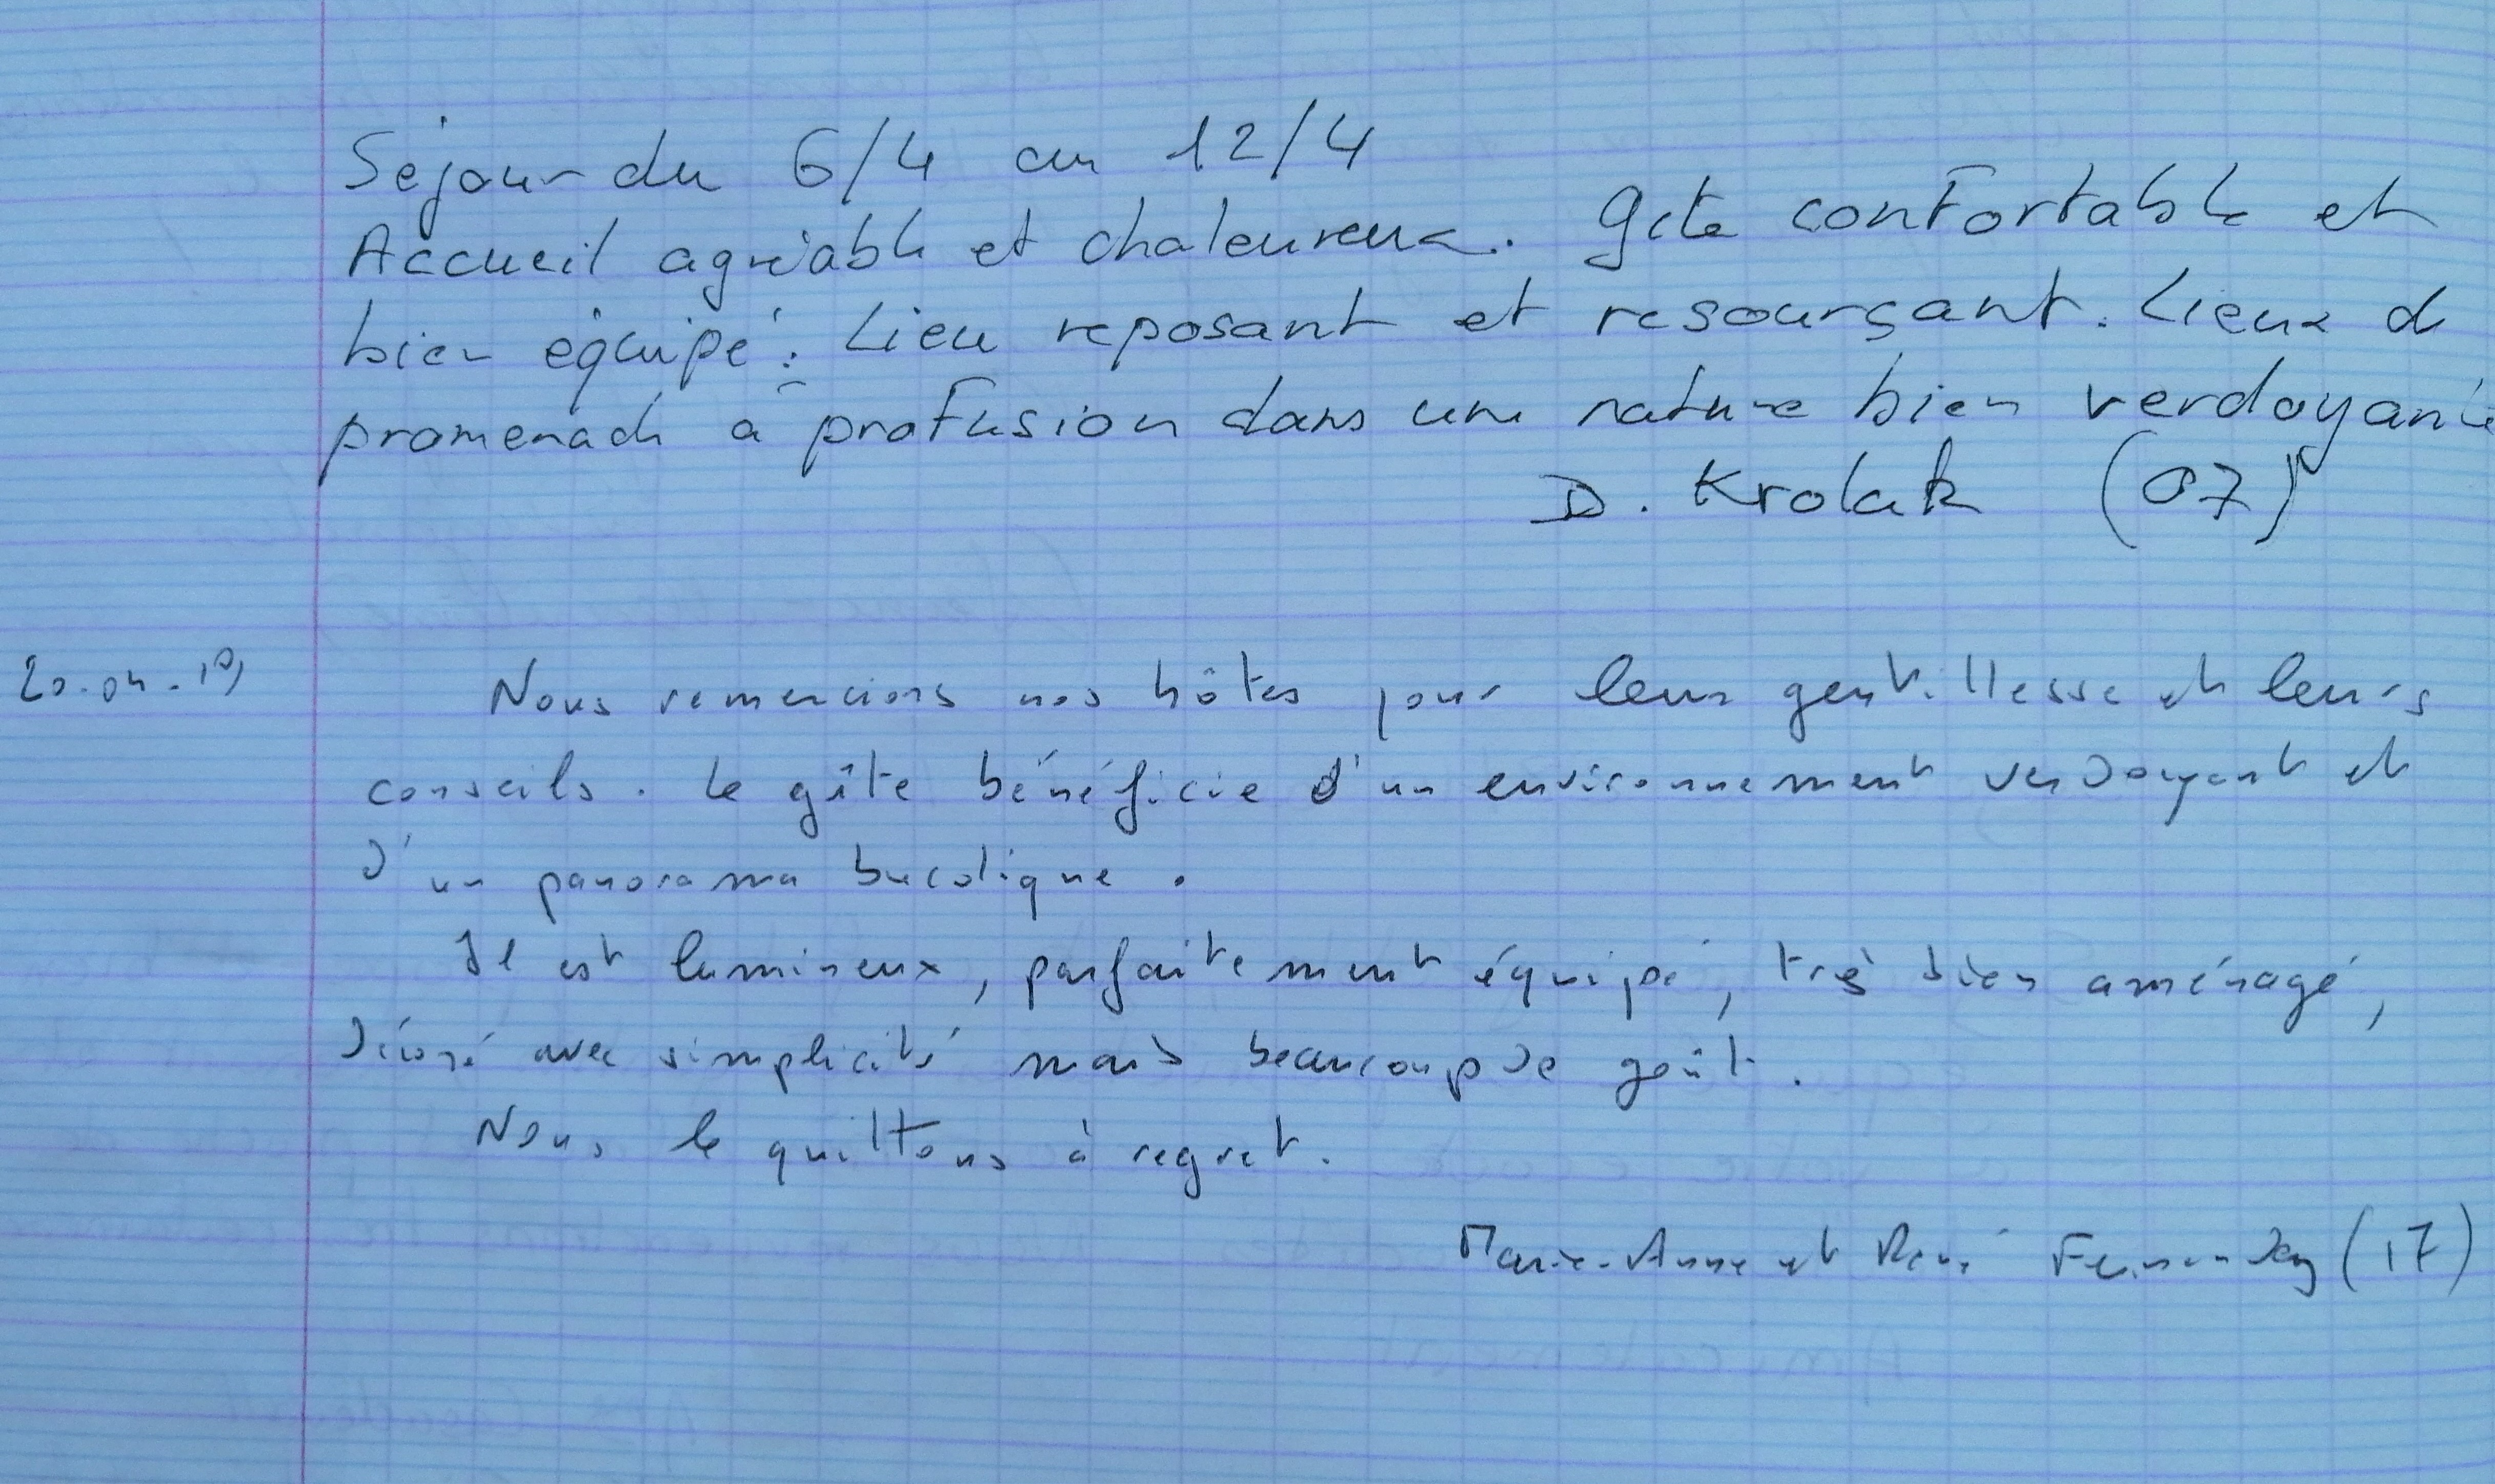 Séjour du 6/4 au 12/4
Accueil agréable et chaleureux. Gite confortable et
bien équipé. Lieu reposant et resourçant. Lieux de
promenade à profusion dans une nature bien verdoyante
D. Krolak (07)
20.04.19
Nous remercions nos hôtes pour leur gentillesse et leurs
conseils. Le gîte bénéficie d'un environnement verdoyant et
d'un panorama bucolique.
Il est lumineux, parfaitement équipé, très bien aménagé,
décoré avec simplicité mais beaucoup de goût.
Nous le quittons à regret.
Marie-Anne et René (17)